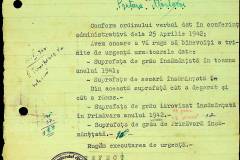 Conform ordinului verbal dat în conferința
administrativă dela 25 Aprilie 1942;
Avem onoare a Vă ruga să binevoiți a tri-
mite de urgență următoarele date:
- Suprafața de grâu însămânțată în toamna
anului 1941;
- Suprafața de secară însămânțată
- Din această suprafață cât a degerat și
cât a rămas.
- Suprafața de grâu iarovizat însămânțată
în Primăvara anului 1942.
- Suprafața de grâu de Primăvară
însămânțată.
Rugăm executarea de urgență.